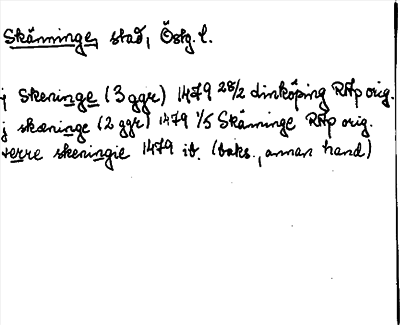 Skänninge, stad, Östg. l.
j Skeninge (3 ggr) 1479 28/2 Linköping RAp orig.
j skæninge (2 ggr) 1479 1/5 Skäninge RAp orig.
terre skeningie 1479 ib. (baks., annan hand)